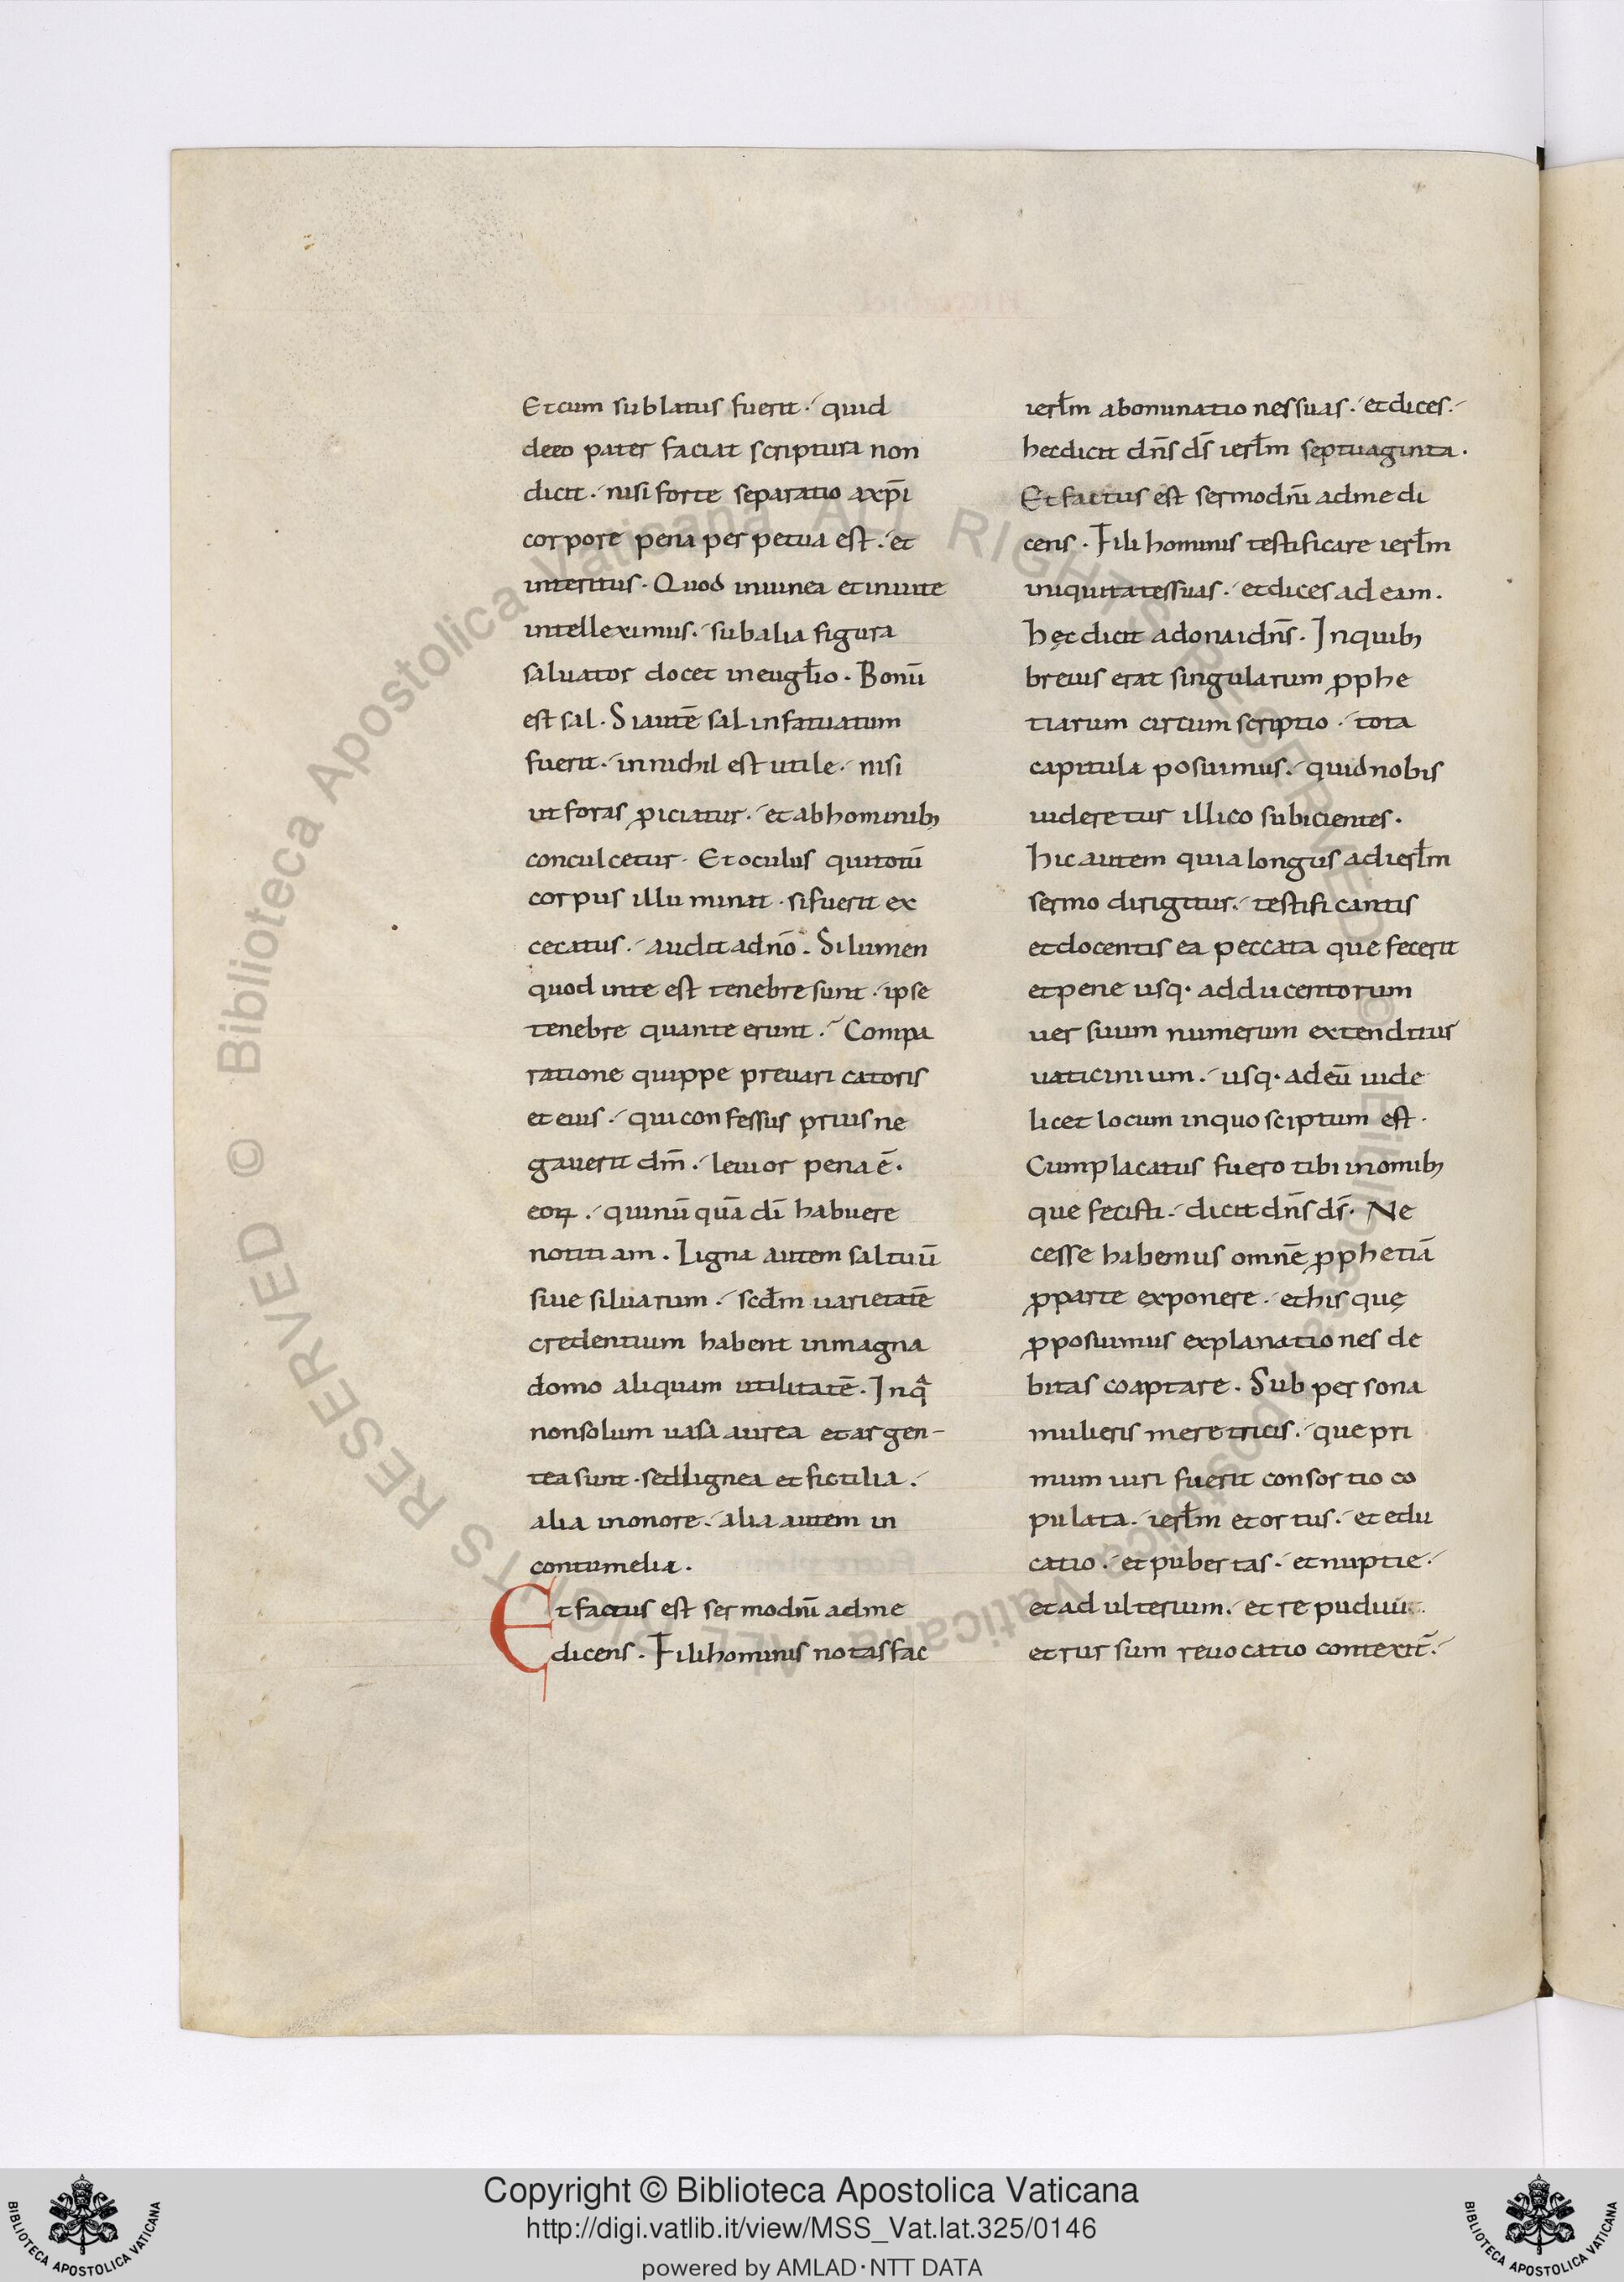 Et cum sublatus fuerit · quid
de eo pater faciat scriptura non
dicit · nisi forte separatio a xp̄i
corpore pena perpetua est · et
interitus · Quod in uinea et in uite
intelleximus · sub alia figura
saluator docet in eugl̄io · Bonū
est sal · Si autē sal infatuatum
fuerit · in nichil est utile · nisi
ut foras ꝓiciatur · et ab hominibꝫ
conculcetur · Et oculus qui totū
corpus illuminat · si fuerit ex
cecatus · audit a dn̄o · Si lumen
quod in te est tenebre sunt · ipse
tenebre quante erunt · Compa
ratione quippe preuaricatoris
et eius · qui confessus prius ne
gauerit dm̄ · leuior pena ē ·
eoꝝ · qui nū quā di habuere
notitiam · Ligna autem saltuū
siue siluarum · scd̄m uarietatē
credentium habent in magna
domo aliquam utilitatē · In qͣ
non solum uasa aurea et argen-
tea sunt · sed lignea et fictilia ·
alia in onore · alia autem in
contumelia ·
Et factus est sermo dn̄i ad me
dicens · Fili hominis notas fac
ierl̄m abominationes suas · et dices ·
hec dicit dn̄s ds̄ ierl̄m septuaginta ·
Et factus est sermo dn̄i ad me di
cens · Fili hominis testificare ierl̄m
iniquitates suas · et dices ad eam ·
hęc dicit adonai dn̄s · In quibꝫ
breuis erat singularum ꝓphe
tiarum circumscriptio · tota
capitula posuimus · quid nobis
uideretur illico subicientes ·
hic autem quia longus ad ierl̄m
sermo dirigitur · testificantis
et docentis ea peccata que fecerit
et pene usq· adducentorum
uersuum numerum extenditur
uaticinium · usq· ad eū uide
licet locum in quo sciptum est ·
Cum placatus fuero tibi in omibꝫ
que fecisti · dicit dn̄s ds̄ · Ne
cesse habemus omnē ꝓphetiā
ꝓ parte exponere · et his quę
ꝓposuimus explanationes de
bitas coaptare · Sub persona
mulieris meretricis · que pri
mum uiri fuerit consortio co
pulata · ierl̄m et ortus · et edu
catio · et pubertas · et nuptie ·
et adulterium · et repudiū
et rursum reuocatio contexit̄ ·
Copyright © Biblioteca Apostolica Vaticana
http://digi.vatlib.it/view/MSS_Vat.lat.325/0146
powered by AMLAD·NTT DATA